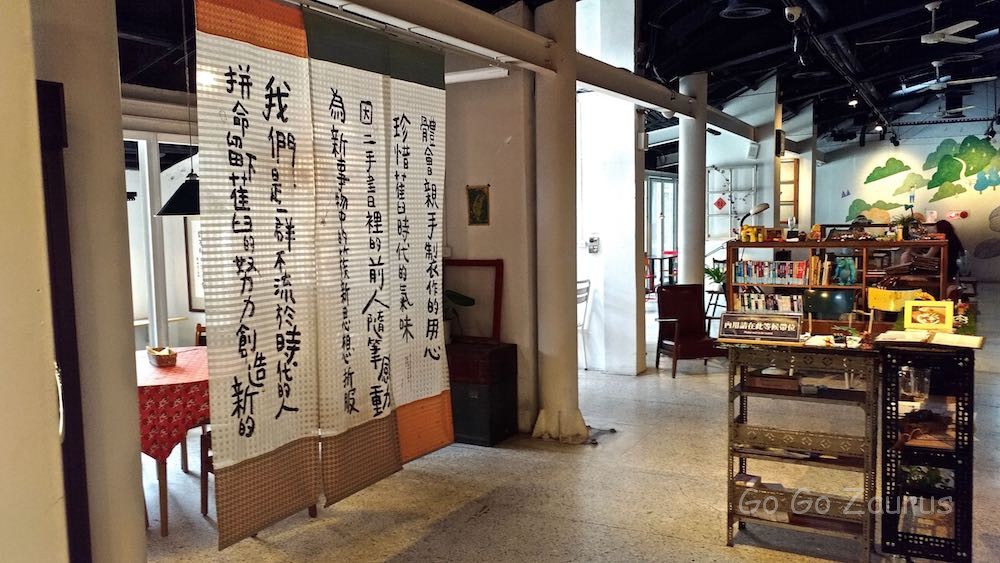 體會親手製作的用心
珍惜舊時代的氣味
因二手書裡的前人隨筆感動
為新事物中的嶄新思想折服
我們是一群不流於時代的人
拼命留下舊的努力創造新的
內用請在此等候帶位
Go Go Zaurus